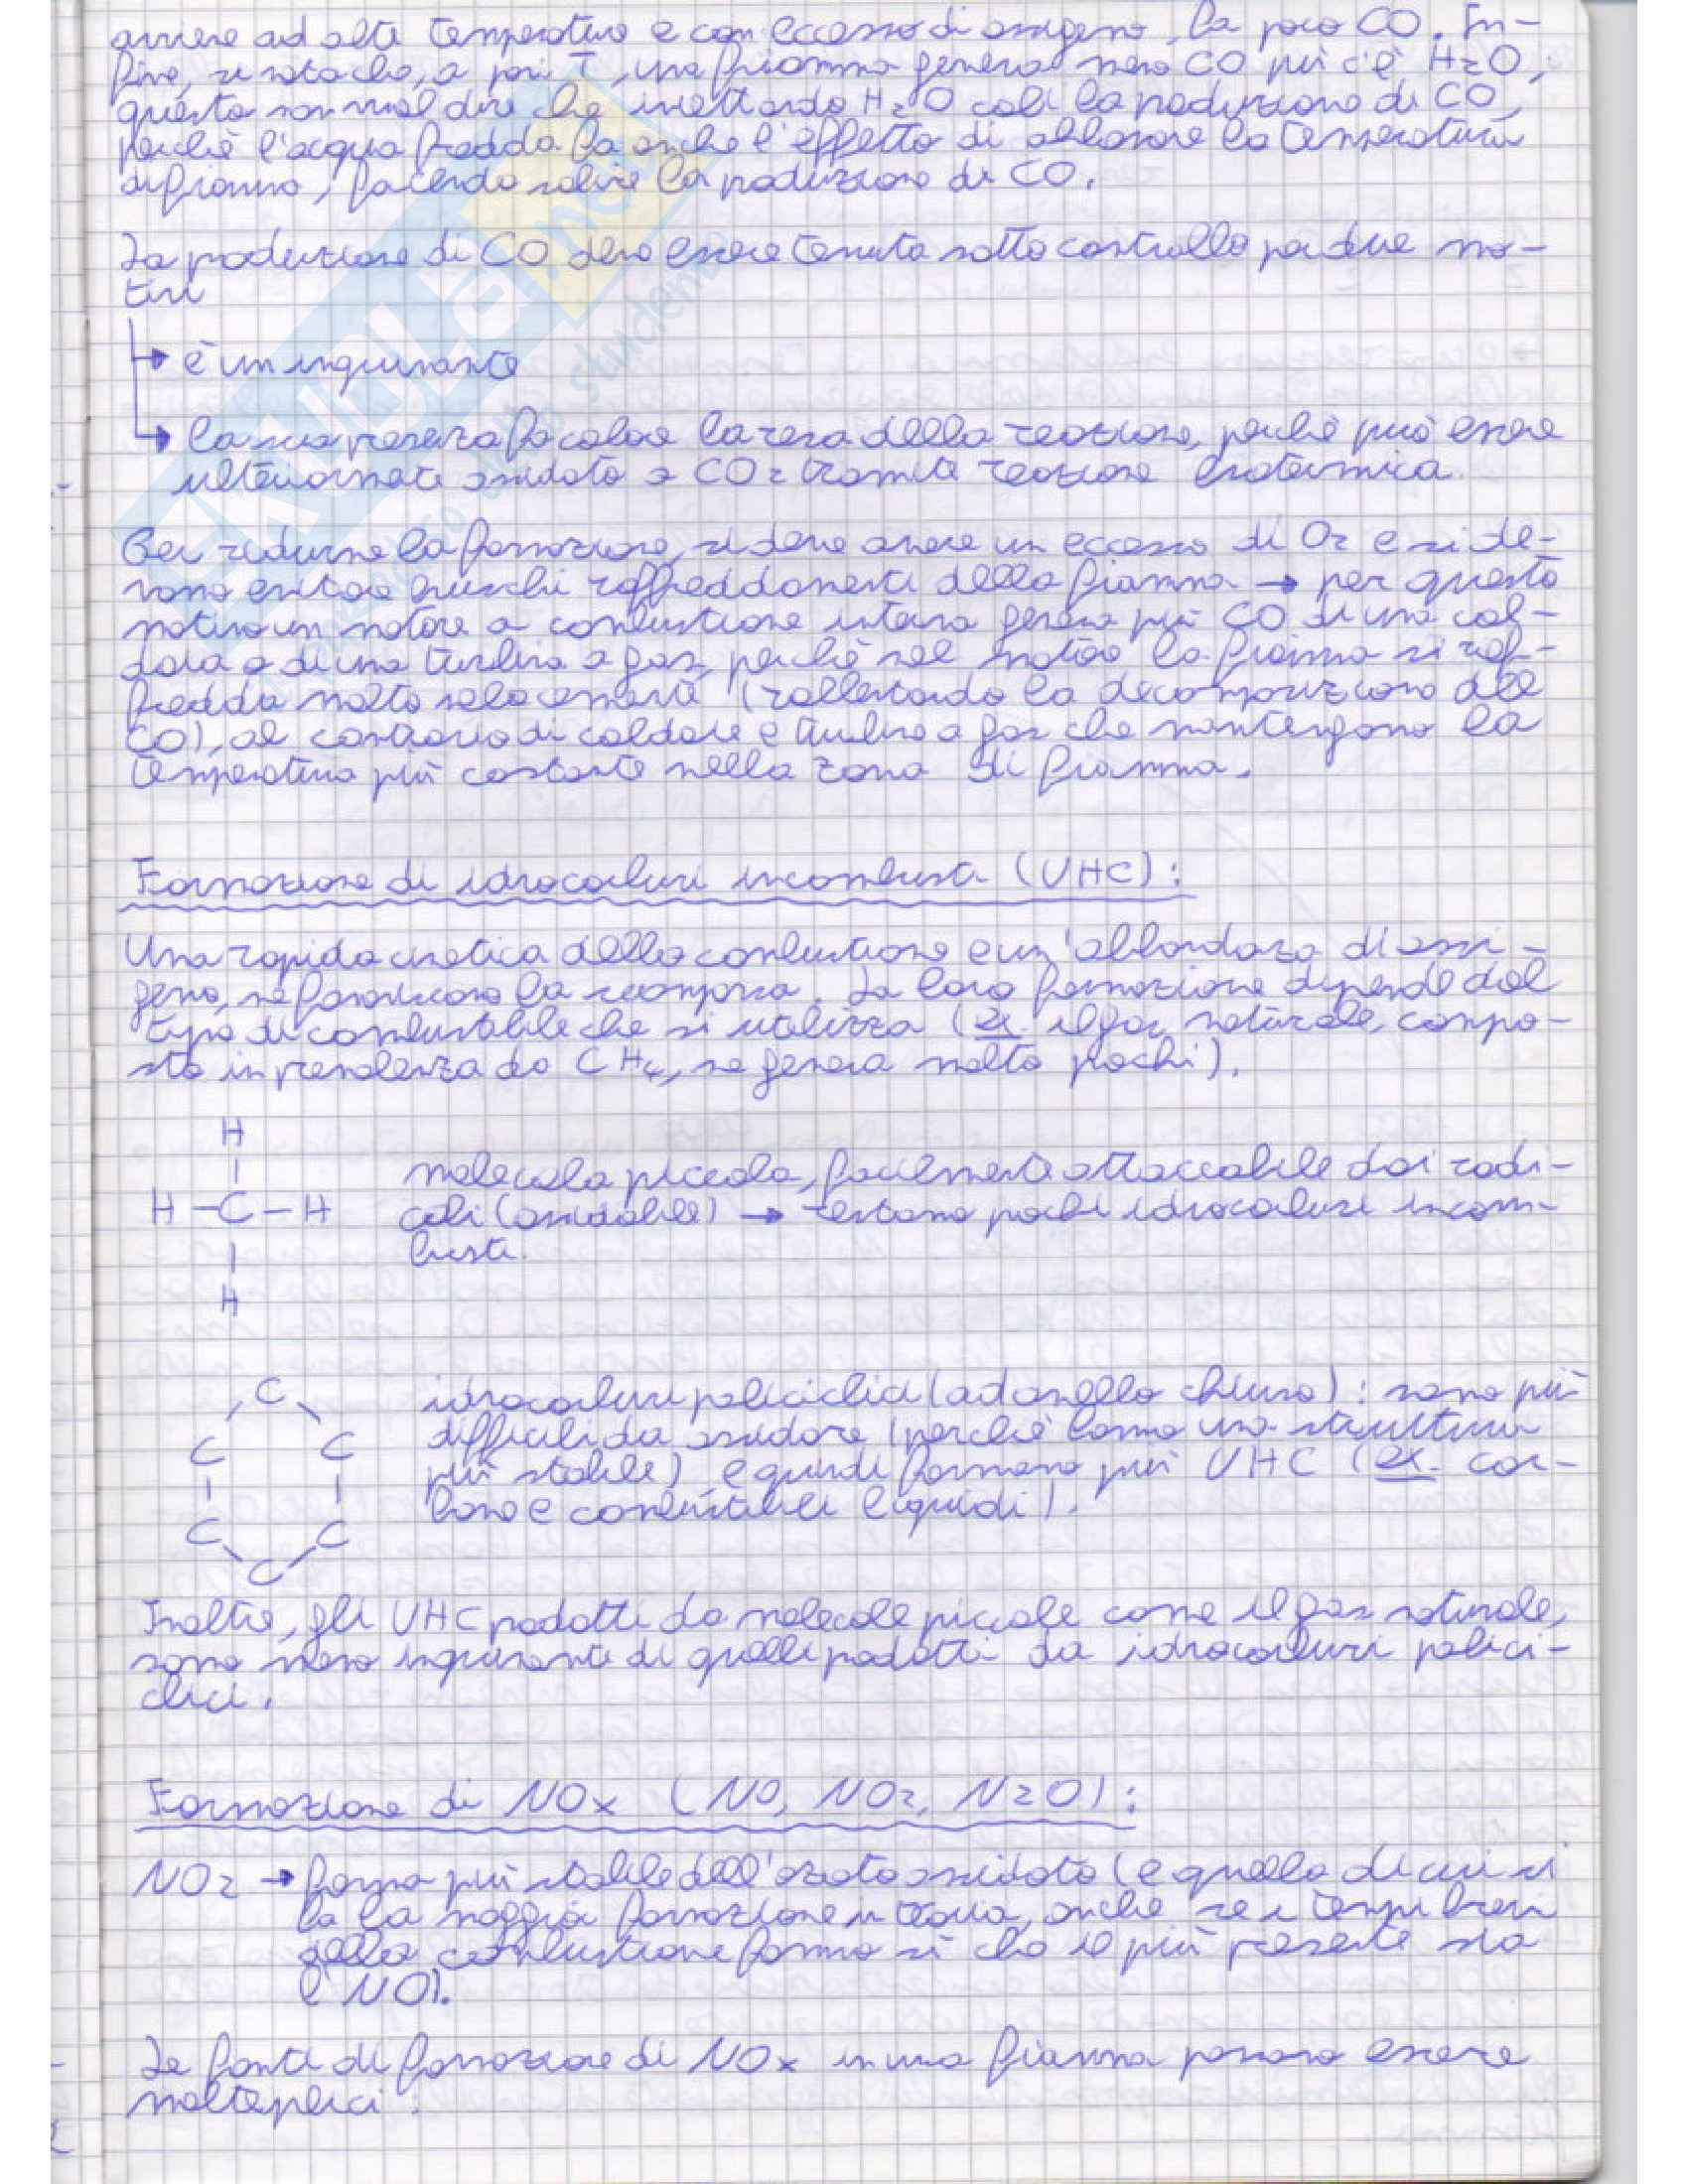 avviene ad alte temperature e con eccesso di ossigeno, ha poco CO. In-
fine, si nota che, a pari T, una fiamma genera meno CO più c'è H2O;
questo non vuol dire che iniettando H2O cali la produzione di CO,
perché l'acqua fredda ha anche l'effetto di abbassare la temperatura
di fiamma, facendo salire la produzione di CO.
La produzione di CO deve essere tenuta sotto controllo per due mo-
tivi
→ è un inquinante
→ la sua presenza fa calare la resa della reazione, perché può essere
ulteriormente ossidato a CO2 tramite reazione esotermica.
Per ridurne la formazione, si deve avere un eccesso di O2 e si de-
vono evitare bruschi raffreddamenti della fiamma → per questo
motivo un motore a combustione interna genera più CO di una cal-
daia o di una turbina a gas, perché nel motore la fiamma si raf-
fredda molto velocemente (rallentando la decomposizione del
CO), al contrario di caldaie e turbine a gas che mantengono la
temperatura più costante nella zona di fiamma.
Formazione di idrocarburi incombusti (UHC):
Una rapida cinetica della combustione e un'abbondanza di ossi-
geno, ne favoriscono la scomparsa. La loro formazione dipende dal
tipo di combustibile che si utilizza (ex. il gas naturale, compo-
sto in prevalenza da CH4, ne genera molto pochi).
H
H - C - H
H
molecola piccola, facilmente attaccabile dai radi-
cali (ossidabile) → restano pochi idrocarburi incom-
busti.
C
C C
C C
C
idrocarburi policiclici (ad anello chiuso): sono più
difficili da ossidare (perché hanno una struttura
più stabile) e quindi formano più UHC (ex. car-
bone e combustibili liquidi).
Inoltre, gli UHC prodotti da molecole piccole come il gas naturale,
sono meno inquinanti di quelli prodotti da idrocarburi polici-
clici.
Formazione di NOx (NO, NO2, N2O):
NO2 → forma più stabile dell'azoto ossidato (e quella di cui si
ha la maggior formazione in teoria, anche se i tempi brevi
della combustione fanno sì che il più presente sia
l'NO).
Le fonti di formazione di NOx in una fiamma possono essere
molteplici: